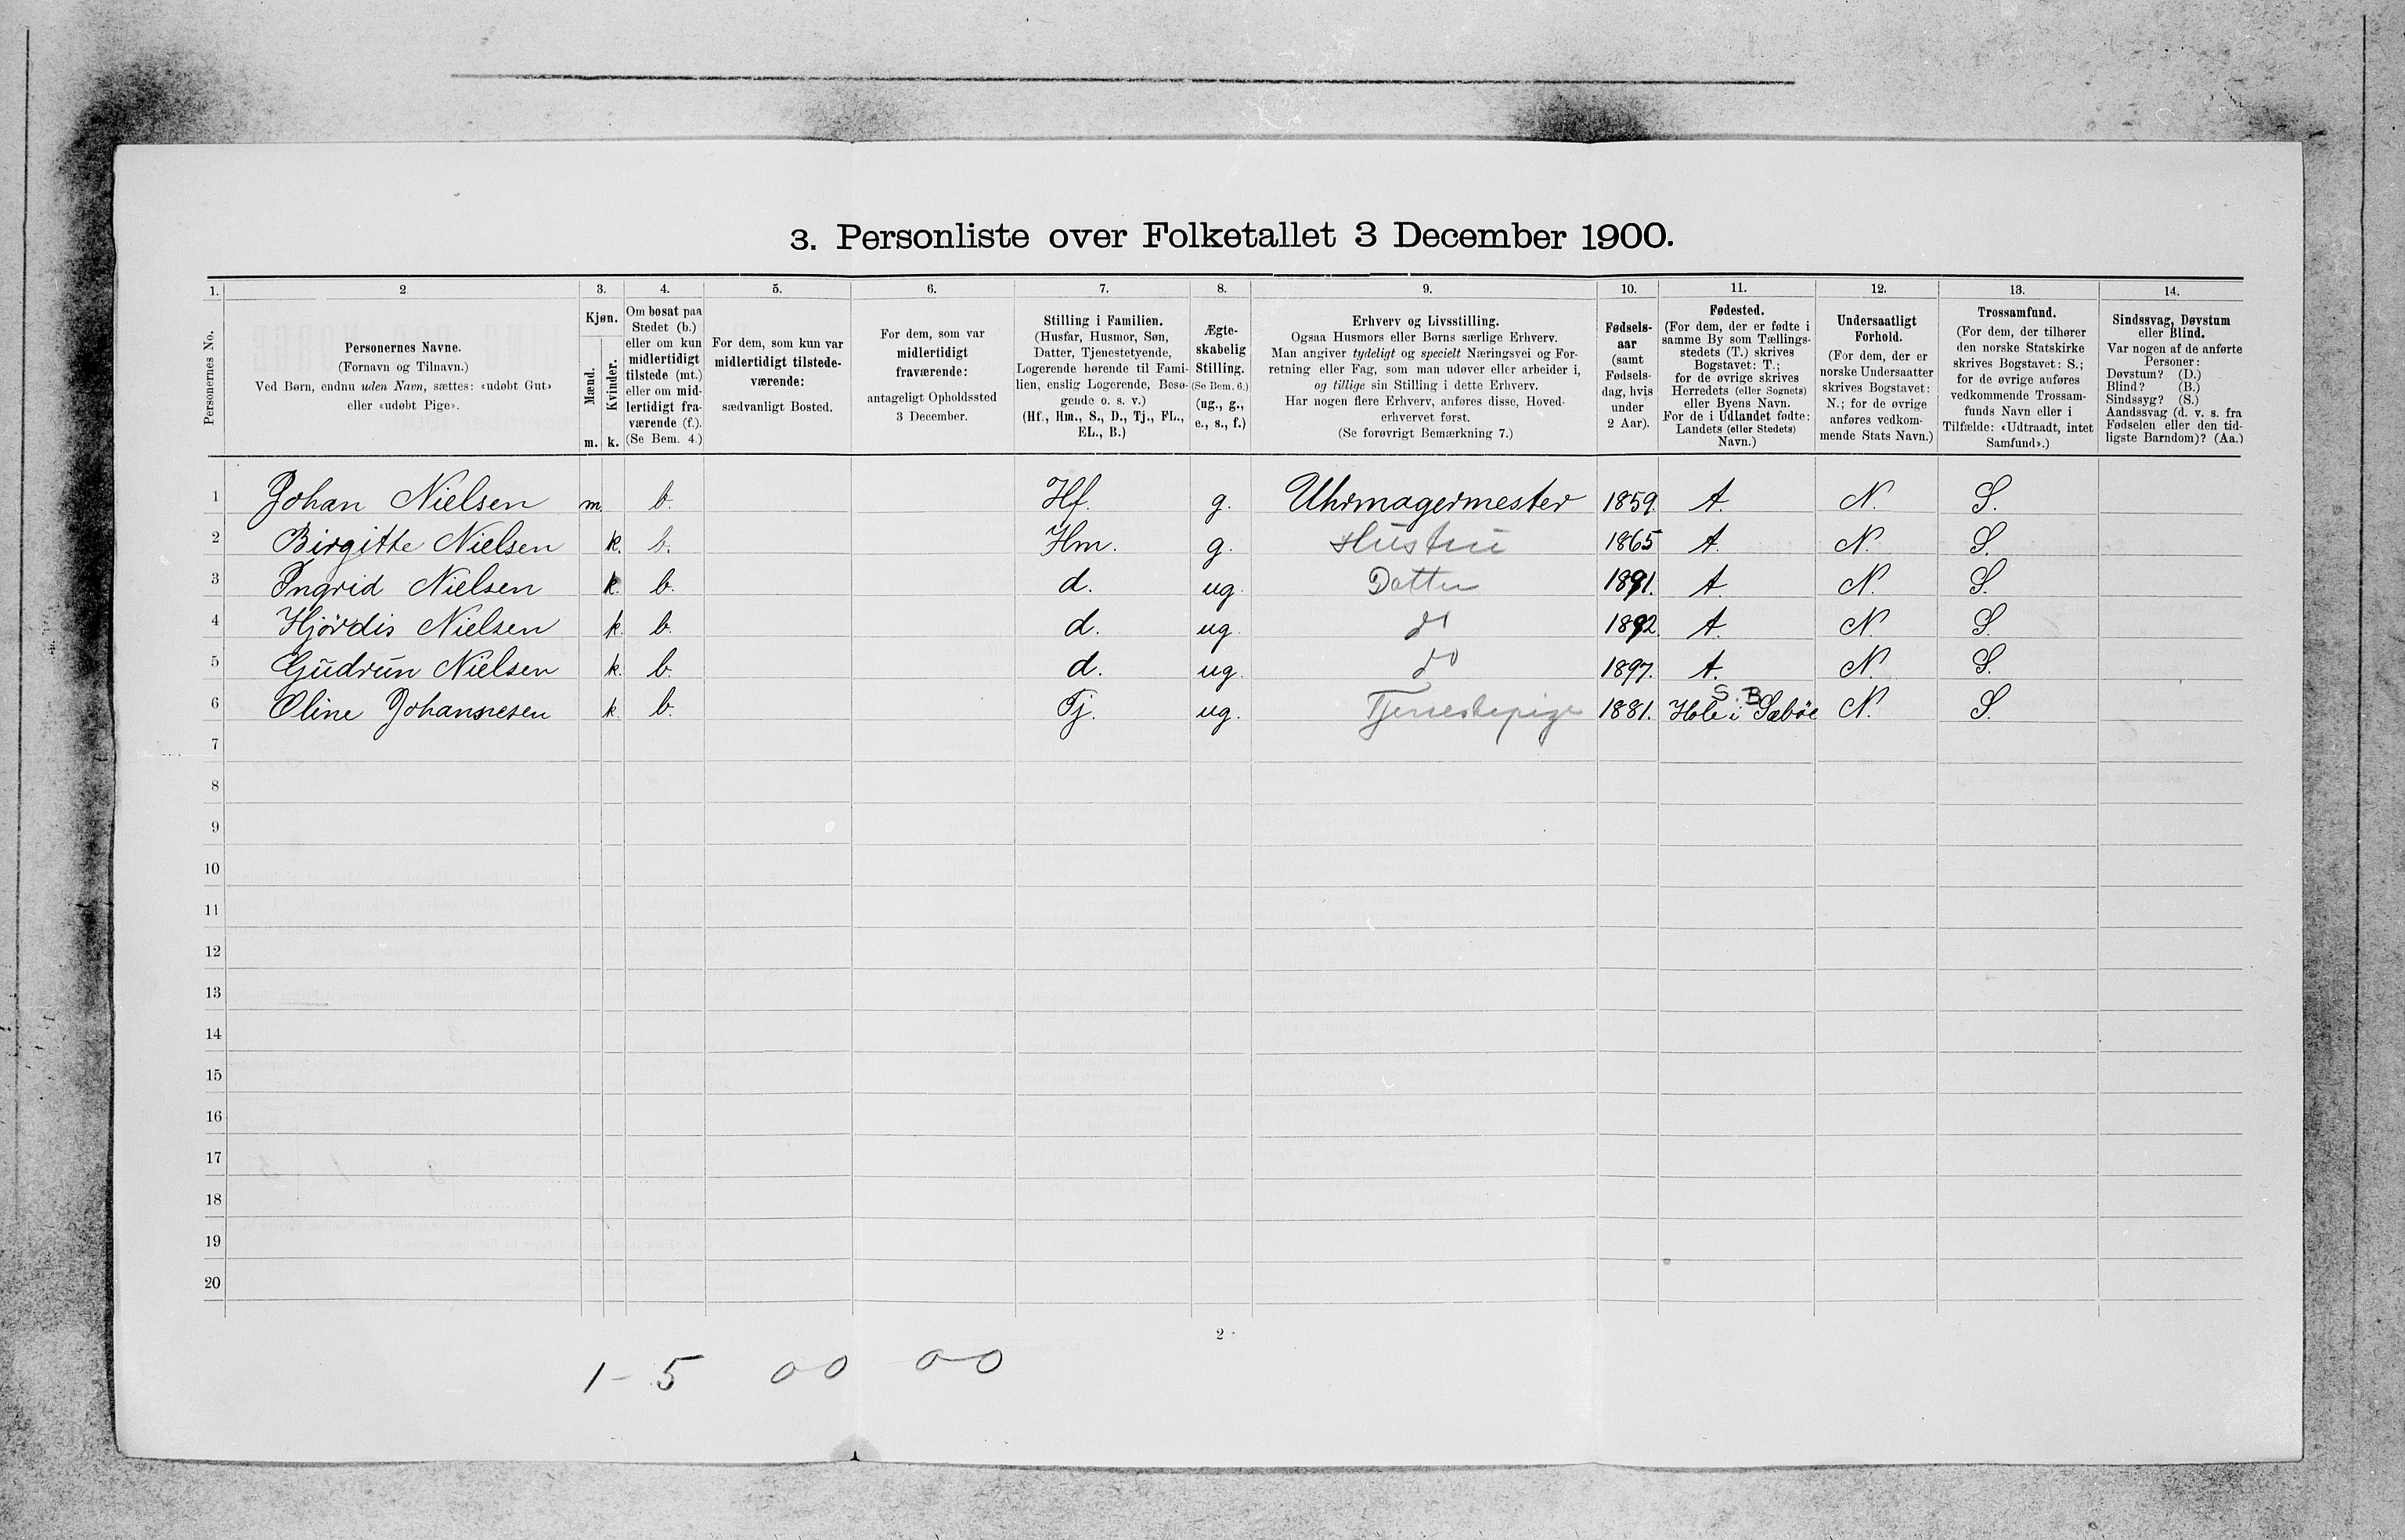 3. Personliste over Folketallet 3 December 1900.
1. 2 3. 4. 5. 6. 7. 8. 9. 10. 11. 12. 13. 14.
Personernes No.
Personernes Navne.
(Fornavn og Tilnavn.)
Ved Børn, endnu uden Navn, sættes: «udøbt Gut»
eller «udøbt Pige».
Kjøn.
Mænd.
Kvinder.
m. k.
Om bosat paa
Stedet (b.)
eller om kun
midlertidigt
tilstede (mt.)
eller om mid-
lertidigt fra-
værende (f.).
(Se Bem. 4.)
For dem, som kun var
midlertidigt tilstede-
værende:
sædvanligt Bosted.
For dem, som var
midlertidigt
fraværende:
antageligt Opholdssted
3 December.
Stilling i Familien.
(Husfar, Husmor, Søn,
Datter, Tjenestetyende,
Logerende hørende til Fami-
lien, enslig Logerende, Besø-
gende o. s. v.)
(Hf., Hm., S., D., Tj., FL.,
EL., B.)
Ægte-
skabelig
Stilling.
(Se Bem. 6.)
(ug., g.,
e., s., f.)
Erhverv og Livsstilling.
Ogsaa Husmors eller Børns særlige Erhverv.
Man angiver tydeligt og specielt Næringsvei og For-
retning eller Fag, som man udøver eller arbeider i,
og tillige sin Stilling i dette Erhverv.
Har nogen flere Erhverv, anføres disse, Hoved-
erhvervet først.
(Se forøvrigt Bemærkning 7.)
Fødsels-
aar
(samt
Fødsels-
dag, hvis
under
2 Aar).
Fødested.
(For dem, der er fødte i
samme By som Tællings-
stedets (T.) skrives
Bogstavet: T.;
for de øvrige skrives
Herredets (eller Sognets)
eller Byens Navn.
For de i Udlandet fødte:
Landets (eller Stedets)
Navn.)
Undersaatligt
Forhold.
(For dem, der er
norske Undersaatter
skrives Bogstavet:
N.; for de øvrige
anføres vedkom-
mende Stats Navn.)
Trossamfund.
(For dem, der tilhører
den norske Statskirke
skrives Bogstavet: S.;
for de øvrige anføres
vedkommende Trossam-
funds Navn eller i
Tilfælde: «Udtraadt, intet
Samfund».)
Sindssvag, Døvstum
eller Blind.
Var nogen af de anførte
Personer:
Døvstum? (D.)
Blind? (B.)
Sindssyg? (S.)
Aandssvag (d. v. s. fra
Fødselen eller den tid-
ligste Barndom)? (Aa.)
1 Johan Nielsen m. b. Hf. g. Uhrmagermester 1859. t. N. S.
2 Birgitte Nielsen k. b. Hm. g. Hustru 1865 t. N. S.
3 Ingrid Nielsen k. b. d. ug. Datter 1891. t. N. S.
4 Hjördis Nielsen k. b. d. ug. do 1892. t. N. S.
5 Gudrun Nielsen k. b. d. ug. do 1897. t. N. S.
S. B
6 Oline Johannesen k. b. Tj. ug. Tjenestepige 1881. Hole i Sæböe N. S.
7
8
9
10
11
12
13
14
15
16
17
18
19
20
2
1 - 5 00 00